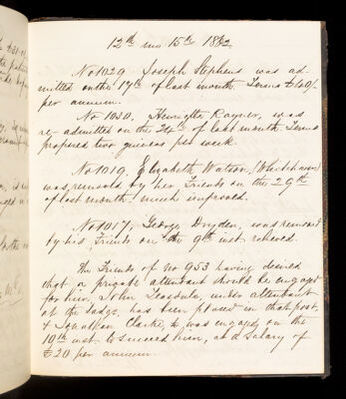 12th mo 15th 1862
No 1029 Joseph Stephens was ad-
mitted on the 17th of last month. Terms £40/-
per annum.
No 1030. Henrietta Rayner, was
re-admitted on the 24th of last month Terms
proposed two guineas per week
No 1019, Elizabeth Watson,
was, removed by her Friends on the 29th
of last month much improved.
No 1017, George Dryden, was removed
by his Friends on the 9th inst relieved
The Friends of No 953 having desired
that a private attendant should be engaged
for him, John Teasdale, under attendant
at the Lodge, has been placed in that post,
& Jonathan Clarke, was engaged on the
10th inst to succeed him, at a Salary of
£20 per annum.